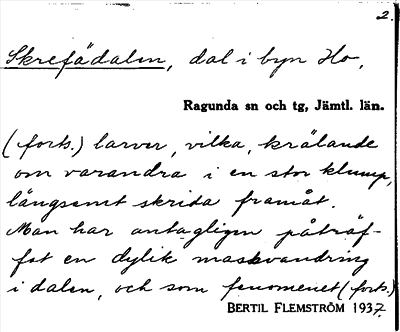 2.
Skrefädalen, dal i byn Ho,
Ragunda sn och tg, Jämtl. län.
(forts.) larver, vilka, krälande
om varandra i en stor klump,
långsamt skrida framåt.
Man har antagligen påträf-
fat en dylik maskvandring
i dalen, och som fenomenet (forts.)
BERTIL FLEMSTRÖM 1937.